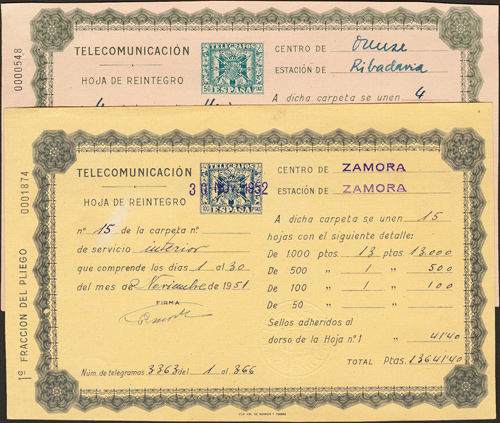 0000548
TELECOMUNICACIÓN
HOJA DE REINTEGRO
TELEGRAFOS
50 ESPAÑA
CENTRO DE Orense
ESTACIÓN DE Ribadavia
A dicha carpeta se unen 4
1ª FRACCION DEL PLIEGO 0001874
TELECOMUNICACIÓN
HOJA DE REINTEGRO
TELEGRAFOS
ESPAÑA
30 NOV. 1952
CENTRO DE ZAMORA
ESTACIÓN DE ZAMORA
nº 15 de la carpeta nº
de servicio interior
que comprende los días 1 al 30
del mes de Noviembre de 1951
FIRMA
Núm. de telegramas 3363 del 1 al 366
A dicha carpeta se unen 15
hojas con el siguiente detalle:
De 1.000 ptas 13 ptas 13.000
De 500 " 1 " 500
De 100 " 1 " 100
De 50 " "
Sellos adheridos al
dorso de la Hoja nº 1 " 41'40
TOTAL Ptas. 13641'40